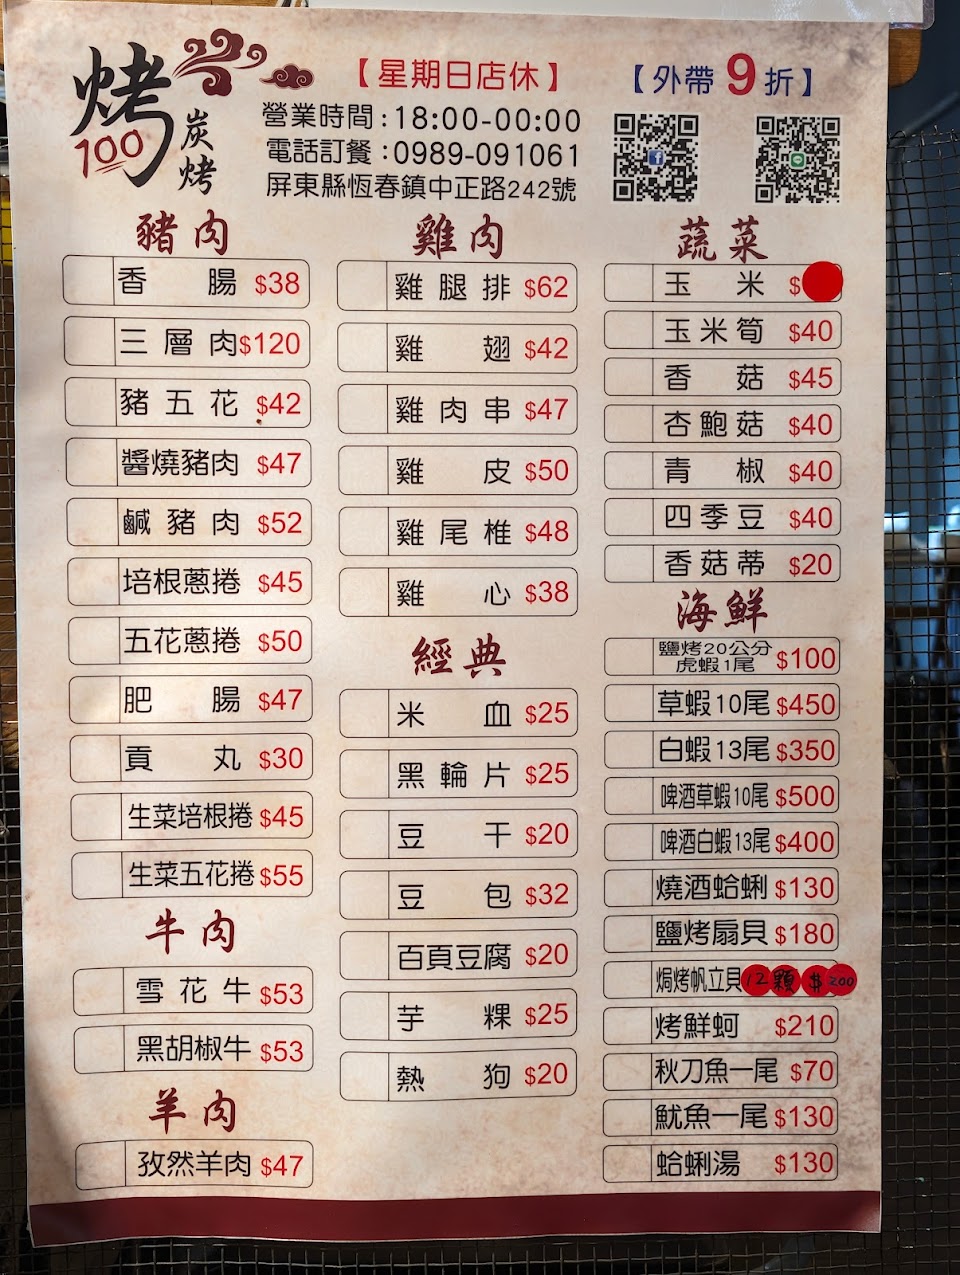 烤
100
炭烤
【星期日店休】
【外帶9折】
營業時間:18:00-00:00
電話訂餐:0989-091061
屏東縣恆春鎮中正路242號
豬肉
香腸 $38
三層肉 $120
豬五花 $42
醬燒豬肉 $47
鹹豬肉 $52
培根蔥捲 $45
五花蔥捲 $50
肥腸 $47
貢丸 $30
生菜培根捲 $45
生菜五花捲 $55
牛肉
雪花牛 $53
黑胡椒牛 $53
羊肉
孜然羊肉 $47
雞肉
雞腿排 $62
雞翅 $42
雞肉串 $47
雞皮 $50
雞尾椎 $48
雞心 $38
經典
米血 $25
黑輪片 $25
豆干 $20
豆包 $32
百頁豆腐 $20
芋粿 $25
熱狗 $20
蔬菜
玉米 $
玉米筍 $40
香菇 $45
杏鮑菇 $40
青椒 $40
四季豆 $40
香菇蒂 $20
海鮮
鹽烤20公分
虎蝦1尾 $100
草蝦10尾 $450
白蝦13尾 $350
啤酒草蝦10尾 $500
啤酒白蝦13尾 $400
燒酒蛤蜊 $130
鹽烤扇貝 $180
焗烤帆立貝 12顆 $200
烤鮮蚵 $210
秋刀魚一尾 $70
魷魚一尾 $130
蛤蜊湯 $130